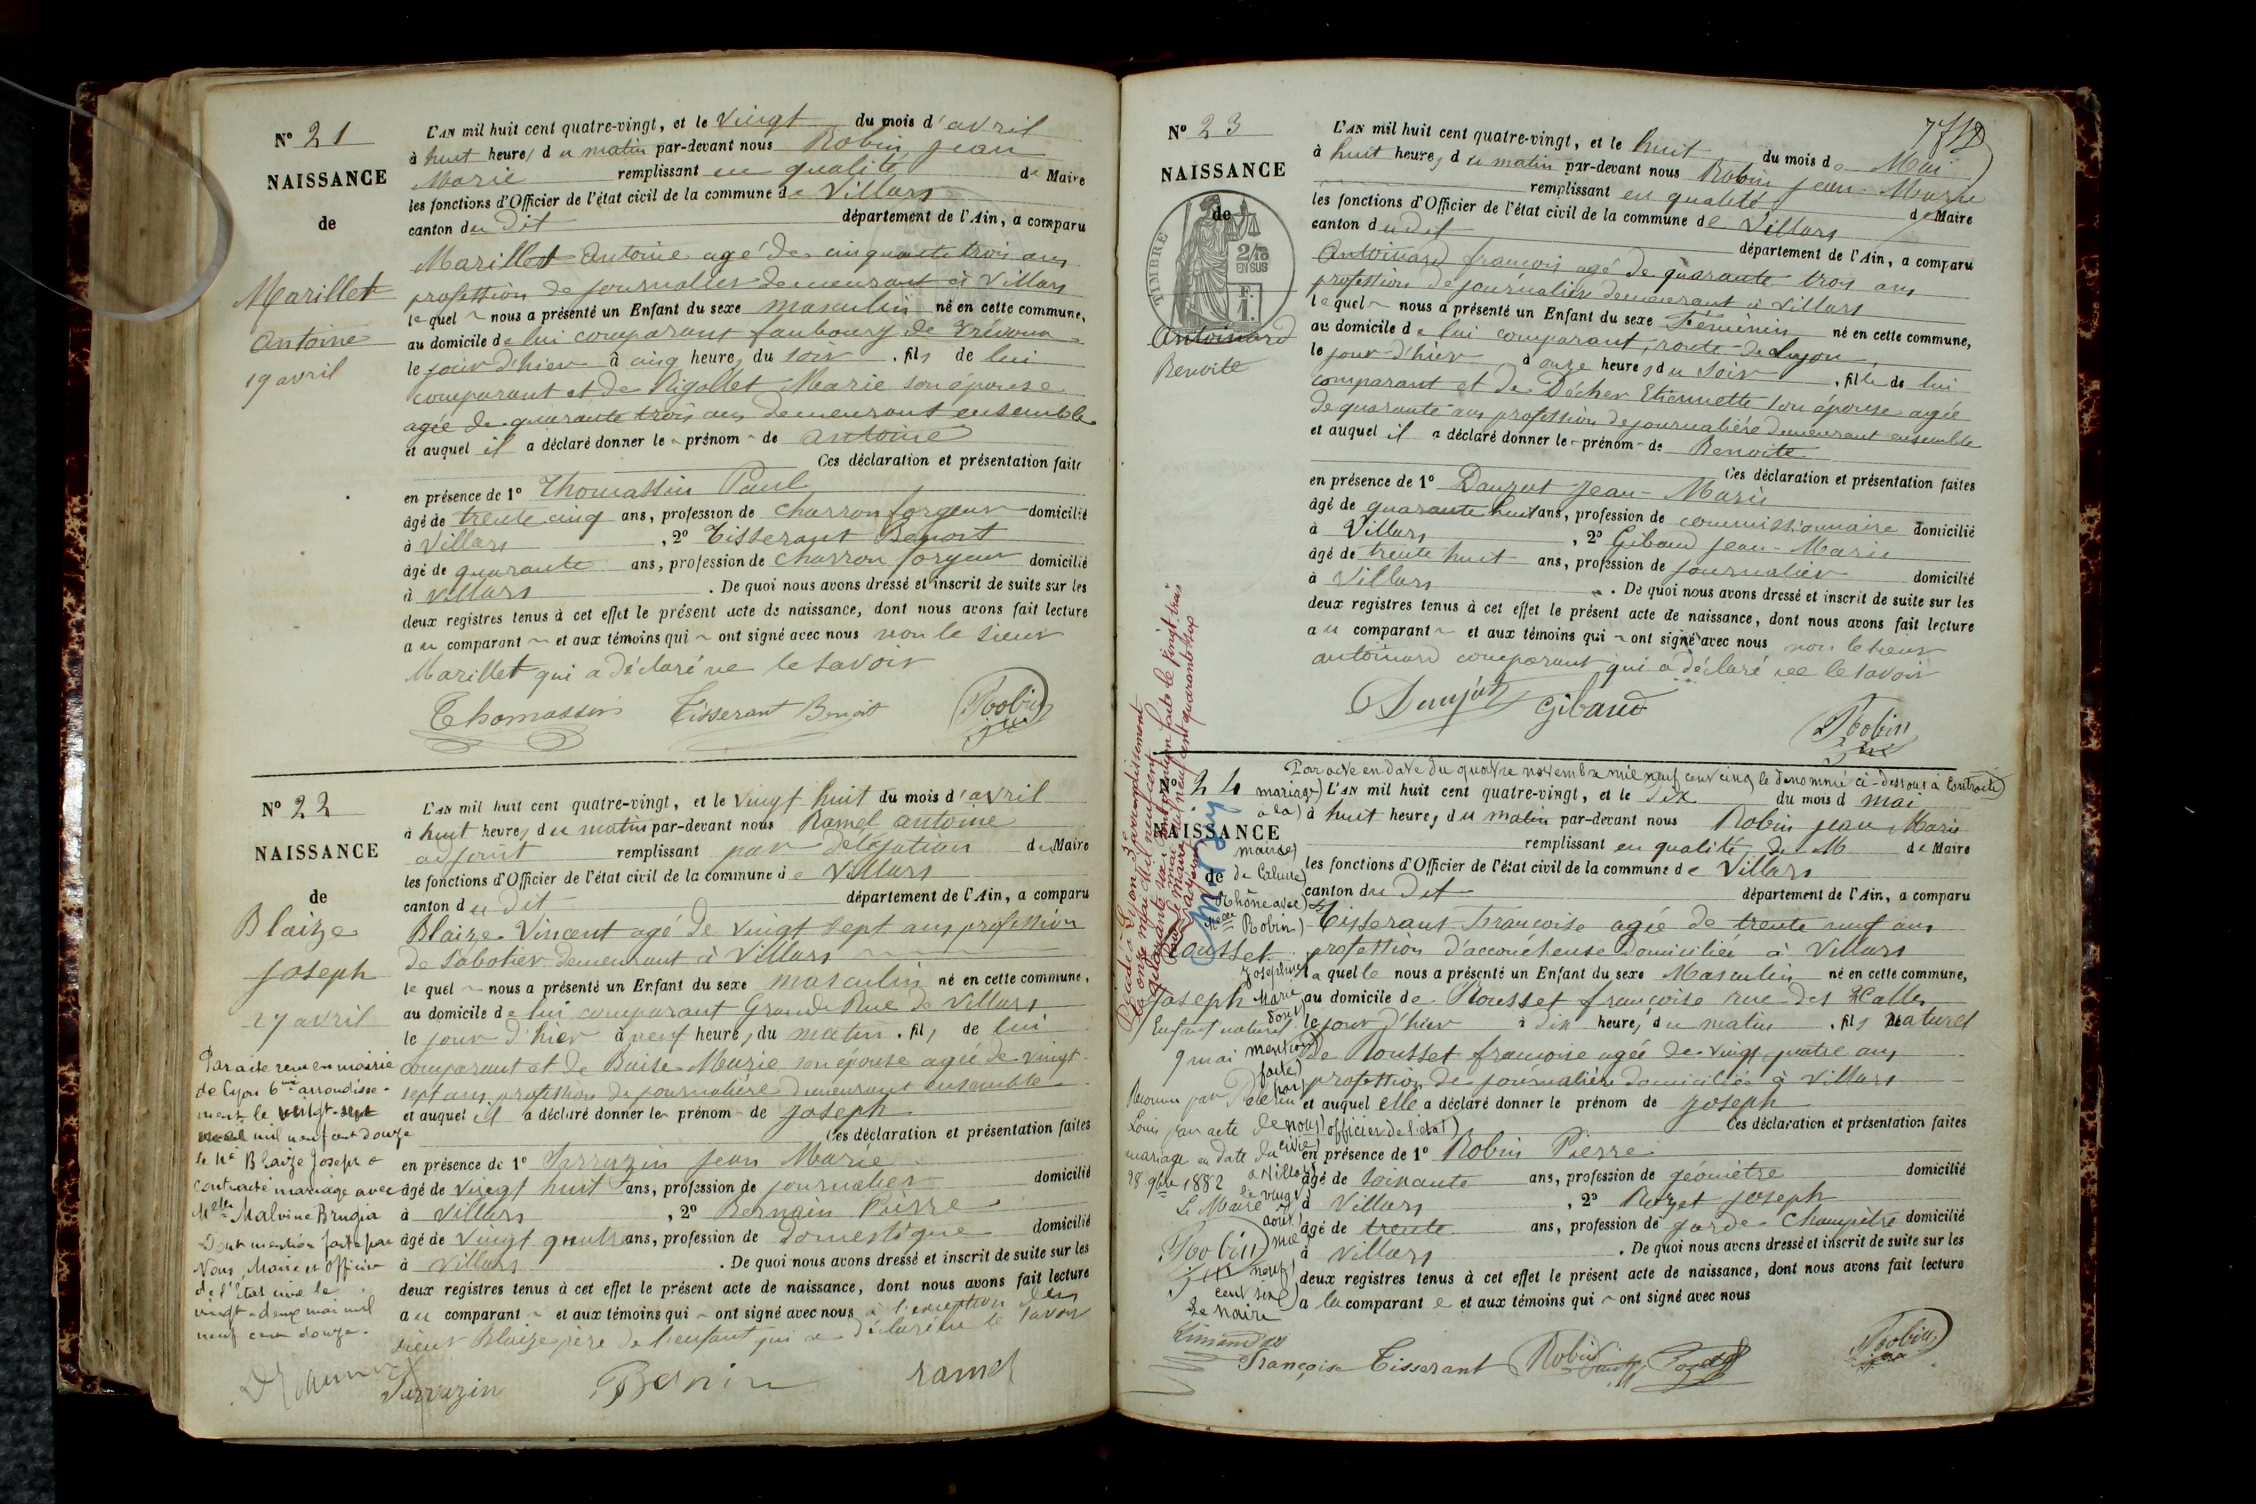 N° 21
NAISSANCE
de
Marillet
Antoine
19 avril
L'AN mil huit cent quatre-vingt, et le vingt du mois d'avril
à huit heures du matin par-devant nous Robin Jean
Marie remplissant en qualité de Maire
les fonctions d'Officier de l'état civil de la commune de Villars
canton du dit département de l'Ain, a comparu
Marillet Antoine agé de cinquante trois ans
profession de journalier demeurant à Villars
lequel nous a présenté un Enfant du sexe masculin né en cette commune,
au domicile de lui comparant faubourg de Trévoux
le jour d'hier à cinq heures du soir, fils de lui
comparant et de Rigollet Marie son épouse
agée de quarante trois ans demeurant ensemble
et auquel il a déclaré donner le prénom de Antoine
Ces déclaration et présentation faites
en présence de 1° Thomassin Paul
âgé de trente cinq ans, profession de charron forgeur domicilié
à Villars, 2° Tisserant Benoit
âgé de quarante ans, profession de charron forgeur domicilié
à Villars. De quoi nous avons dressé et inscrit de suite sur les
deux registres tenus à cet effet le présent acte de naissance, dont nous avons fait lecture
au comparant et aux témoins qui ont signé avec nous non le sieur
Marillet qui a déclaré ne le savoir
Thomassin Tisserant Benoit Robin
N° 22
NAISSANCE
de
Blaize
Joseph
27 avril
Par acte reçu en mairie
de Lyon 6me arrondisse-
ment le vingt-sept
mil neuf cent douze
le né Blaize Joseph a
contracté mariage avec
Melle Malvine Brugia
Dont mention faite par
Nous, Maire et officier
de l'Etat civil le
vingt-deux mai mil
neuf cent douze.
L'AN mil huit cent quatre-vingt, et le vingt huit du mois d'avril
à huit heures du matin par-devant nous Ramel Antoine
adjoint remplissant par délégation du Maire
les fonctions d'Officier de l'état civil de la commune de Villars
canton du dit département de l'Ain, a comparu
Blaize Vincent agé de vingt sept ans profession
de sabotier demeurant à Villars
lequel nous a présenté un Enfant du sexe masculin né en cette commune,
au domicile de lui comparant Grande Rue de Villars
le jour d'hier à neuf heures du matin, fils de lui
comparant et de Buise Marie son épouse agée de vingt
sept ans, profession de journalière demeurant ensemble
et auquel il a déclaré donner le prénom de Joseph
Ces déclaration et présentation faites
en présence de 1° Sarrazin Jean Marie
âgé de vingt huit ans, profession de journalier domicilié
à Villars, 2° Bernin Pierre
âgé de vingt quatre ans, profession de domestique domicilié
à Villars. De quoi nous avons dressé et inscrit de suite sur les
deux registres tenus à cet effet le présent acte de naissance, dont nous avons fait lecture
au comparant et aux témoins qui ont signé avec nous à l'exception du
sieur Blaize père de l'enfant qui a déclaré ne le savoir
Sarrazin Bernin ramel
N° 23
NAISSANCE
de
TIMBRE
2/10
EN SUS
F.
1.
Antoinard
Benoite
L'AN mil huit cent quatre-vingt, et le huit du mois de Mai
à huit heures du matin par-devant nous Robin Jean-Marie
remplissant en qualité de Maire
les fonctions d'Officier de l'état civil de la commune de Villars
canton du dit département de l'Ain, a comparu
Antoinard françois agé de quarante trois ans
profession de journalier demeurant à Villars
lequel nous a présenté un Enfant du sexe Féminin né en cette commune,
au domicile de lui comparant, route de Lyon
le jour d'hier à onze heures du soir, fille de lui
comparant et de Décher Etiennette son épouse agée
de quarante ans profession de journalière demeurant ensemble
et auquel il a déclaré donner le prénom de Benoite
Ces déclaration et présentation faites
en présence de 1° Danjat Jean-Marie
âgé de quarante huit ans, profession de commissionnaire domicilié
à Villars, 2° Gibaud Jean-Marie
âgé de trente huit ans, profession de journalier domicilié
à Villars. De quoi nous avons dressé et inscrit de suite sur les
deux registres tenus à cet effet le présent acte de naissance, dont nous avons fait lecture
au comparant et aux témoins qui ont signé avec nous non le sieur
antoinard comparant qui a déclaré ne le savoir
Gibaud Robin
N° 24
NAISSANCE
de
Rousset
Joseph
Enfant naturel
9 mai
Reconnu par Pelerin
Louis par acte de
mariage en date du
28 9bre 1882
Le Maire
Robin
Par acte en date du quatre novembre mil neuf cent cinq le dénommé ci-dessous a contracté
mariage
à la
mairie
de Caluire
Rhône avec
Robin
Joséphine
Marie
dont
mention
faite
par
nous officier de l'état
civil
à Villars
le vingt
août
mil
neuf
cent six
Le maire
L'AN mil huit cent quatre-vingt, et le dix du mois d mai
à huit heures du matin par-devant nous Robin Jean Marie
remplissant en qualité de M de Maire
les fonctions d'Officier de l'état civil de la commune de Villars
canton du dit département de l'Ain, a comparu
Tisserant Françoise agée de trente neuf ans
profession d'accoucheuse domiciliée à Villars
laquelle nous a présenté un Enfant du sexe Masculin né en cette commune,
au domicile de Rousset françoise rue des Halles
le jour d'hier à dix heures du matin, fils naturel
de Rousset françoise agée de vingt quatre ans
profession de journalière domiciliée à Villars
et auquel elle a déclaré donner le prénom de Joseph
Ces déclaration et présentation faites
en présence de 1° Robin Pierre
âgé de soixante ans, profession de géomètre domicilié
à Villars, 2° Joseph
âgé de trente ans, profession de garde-champêtre domicilié
à Villars. De quoi nous avons dressé et inscrit de suite sur les
deux registres tenus à cet effet le présent acte de naissance, dont nous avons fait lecture
a la comparante et aux témoins qui ont signé avec nous
Françoise Tisserant Robin Robin